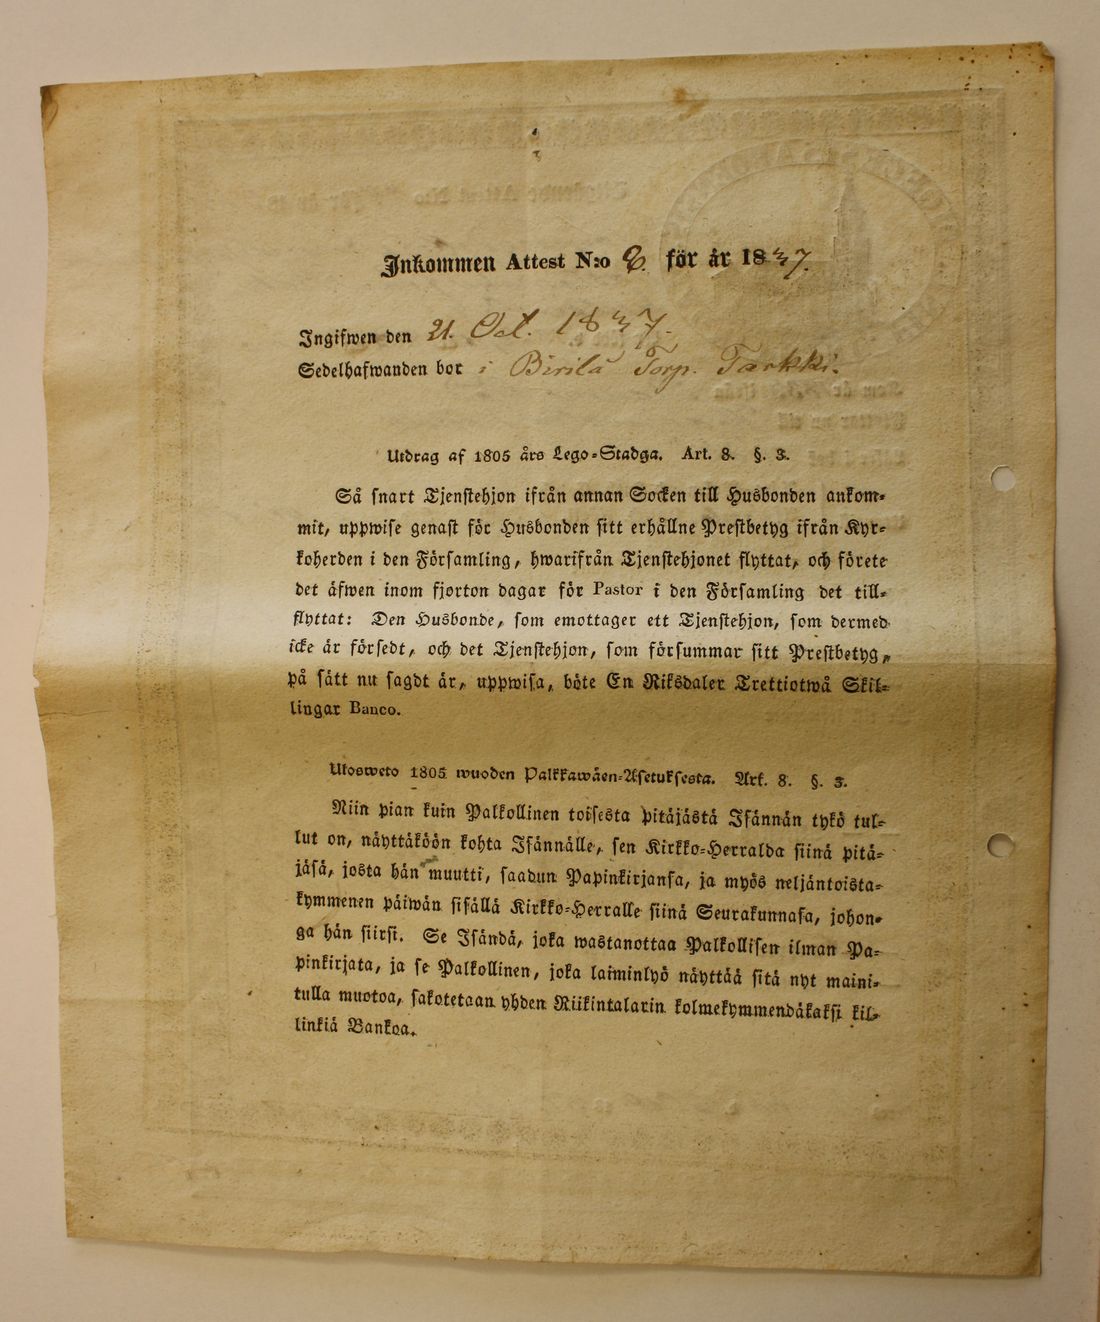 Inkommen Attest N:o 8. för år 1837.
Ingifwen den 21. Oct. 1837.
Sedelhafwanden bor i Birilä Torp. Tarkki.
Utdrag af 1805 års Lego-Stadga. Art. 8. §. 3.
Så snart Tjenstehjon ifrån annan Socken till Husbonden ankom-
mit, uppwise genast för Husbonden sitt erhållne Prestbetyg ifrån Kyr-
koherden i den Församling, hwarifrån Tjenstehjonet flyttat, och förete
det äfwen inom fjorton dagar för Pastor i den Församling det till-
flyttat: Den Husbonde, som emottager ett Tjenstehjon, som dermed
icke är försedt, och det Tjenstehjon, som försummar sitt Prestbetyg,
på sätt nu sagdt är, uppwisa, böte En Riksdaler Trettiotwå Skil-
lingar Banco.
Ulosweto 1805 wuoden Palkkawäen-Asetuksesta. Art. 8. §. 3.
Niin pian kuin Palkollinen toisesta pitäjästä Isännän tykö tul-
lut on, näyttäköön kohta Isännälle, sen Kirkko-Herralda siinä pitä-
jäsä, josta hän muutti, saadun Papinkirjansa, ja myös neljäntoista-
kymmenen päiwän sisällä Kirkko-Herralle siinä Seurakunnasa, johon-
ga hän siirsi. Se Isändä, joka wastanottaa Palkollisen ilman Pa-
pinkirjata, ja se Palkollinen, joka laiminlyö näyttää sitä nyt maini-
tulla muotoa, sakotetaan yhden Riikintalarin kolmekymmendäkaksi kil-
linkiä Bankoa.